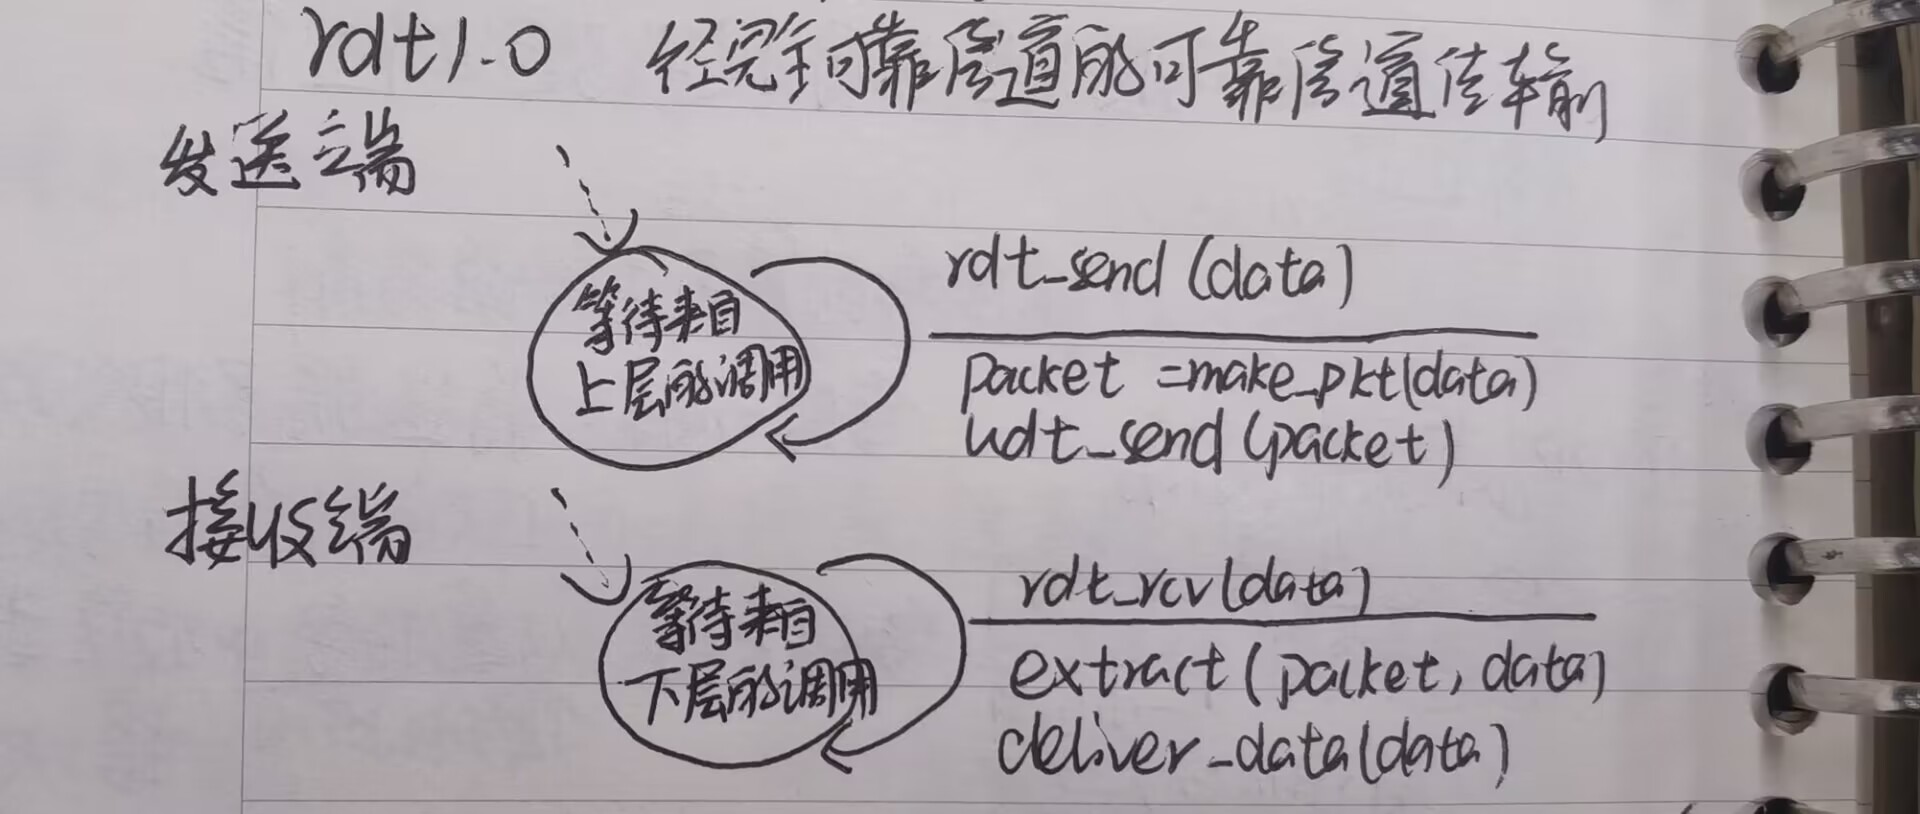 rdt1.0 经完全可靠信道的可靠信道传输
发送端
等待来自
上层的调用
rdt_send (data)
packet =make_pkt(data)
udt_send (packet)
接收端
等待来自
下层的调用
rdt_rcv(data)
extract (packet, data)
deliver_data(data)